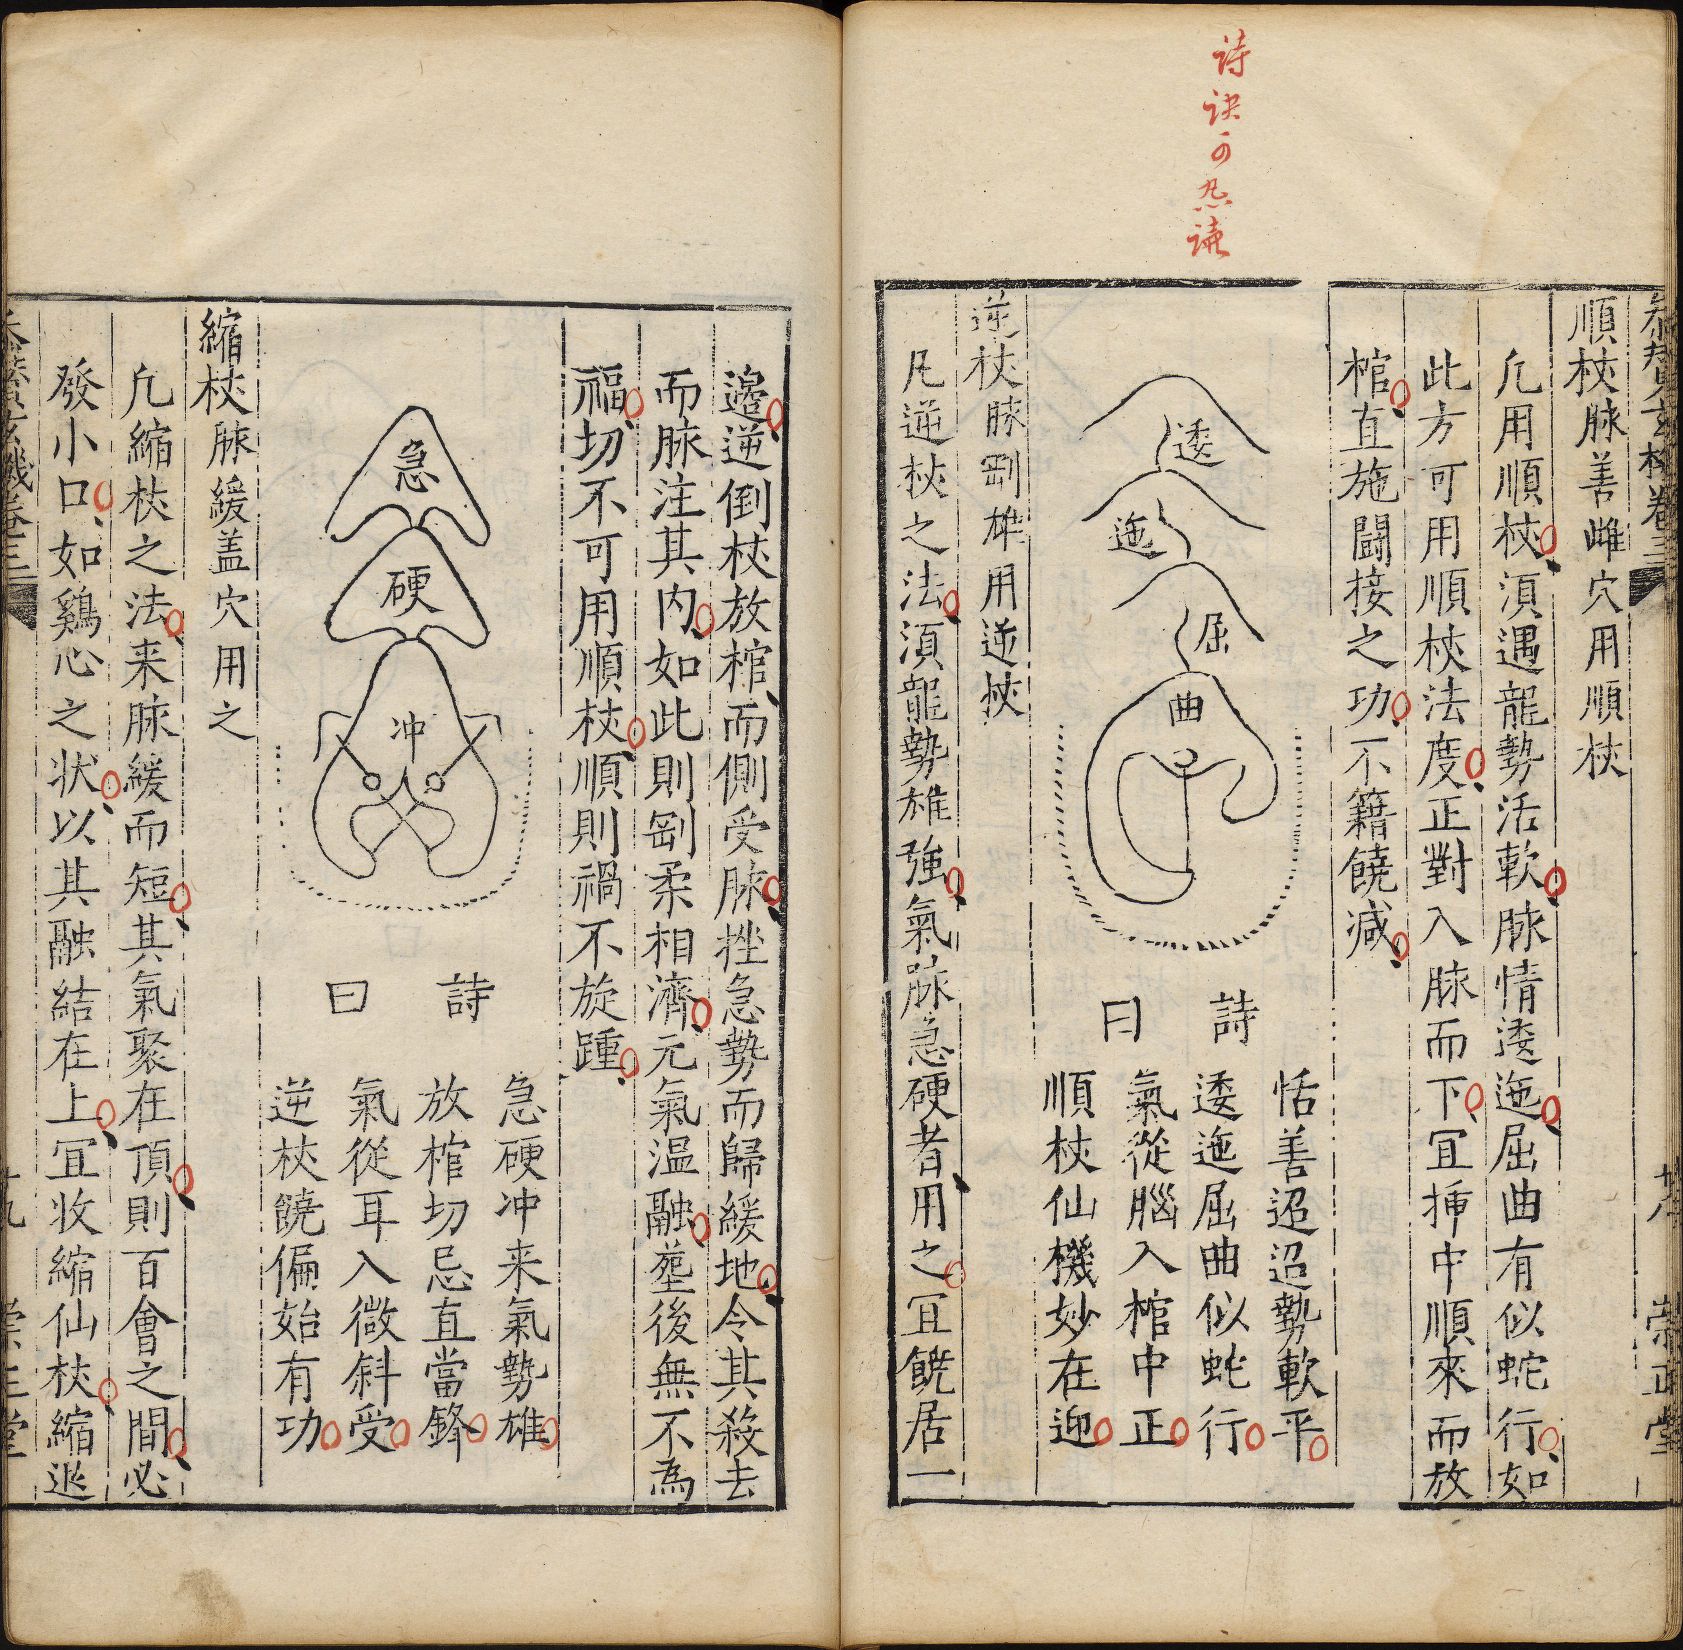 詩訣可忽讀
順杖脉善雌穴用順杖
凢用順杖湏遇龍勢活軟脉情逶迤屈曲有似蛇行如
此方可用順杖法度正對入脉而下冝揷中順來而放
棺直施鬪接之功不籍饒减
逶
迤
屈
曲
詩曰
恬善迢迢勢軟平
逶迤屈曲似蛇行
氣從腦入棺中正
順杖仙機妙在迎
逆杖脉剛雄用逆杖
凡逆杖之法湏龍勢雄強氣脉急硬者用之冝饒居一
邉逆倒杖放棺而側受脉挫急勢而歸緩地令其殺去
而脉注其内如此則剛柔相濟元氣温融塟後無不為
福切不可用順杖順則禍不旋踵
急
硬
冲
詩曰
急硬冲来氣勢雄
放棺切忌直當鋒
氣從耳入微斜受
逆杖饒偏始有功
縮杖脉緩盖穴用之
凢縮杖之法来脉緩而短其氣聚在頂則百會之間必
發小口如鷄心之状以其融結在上冝收縮仙杖縮迯